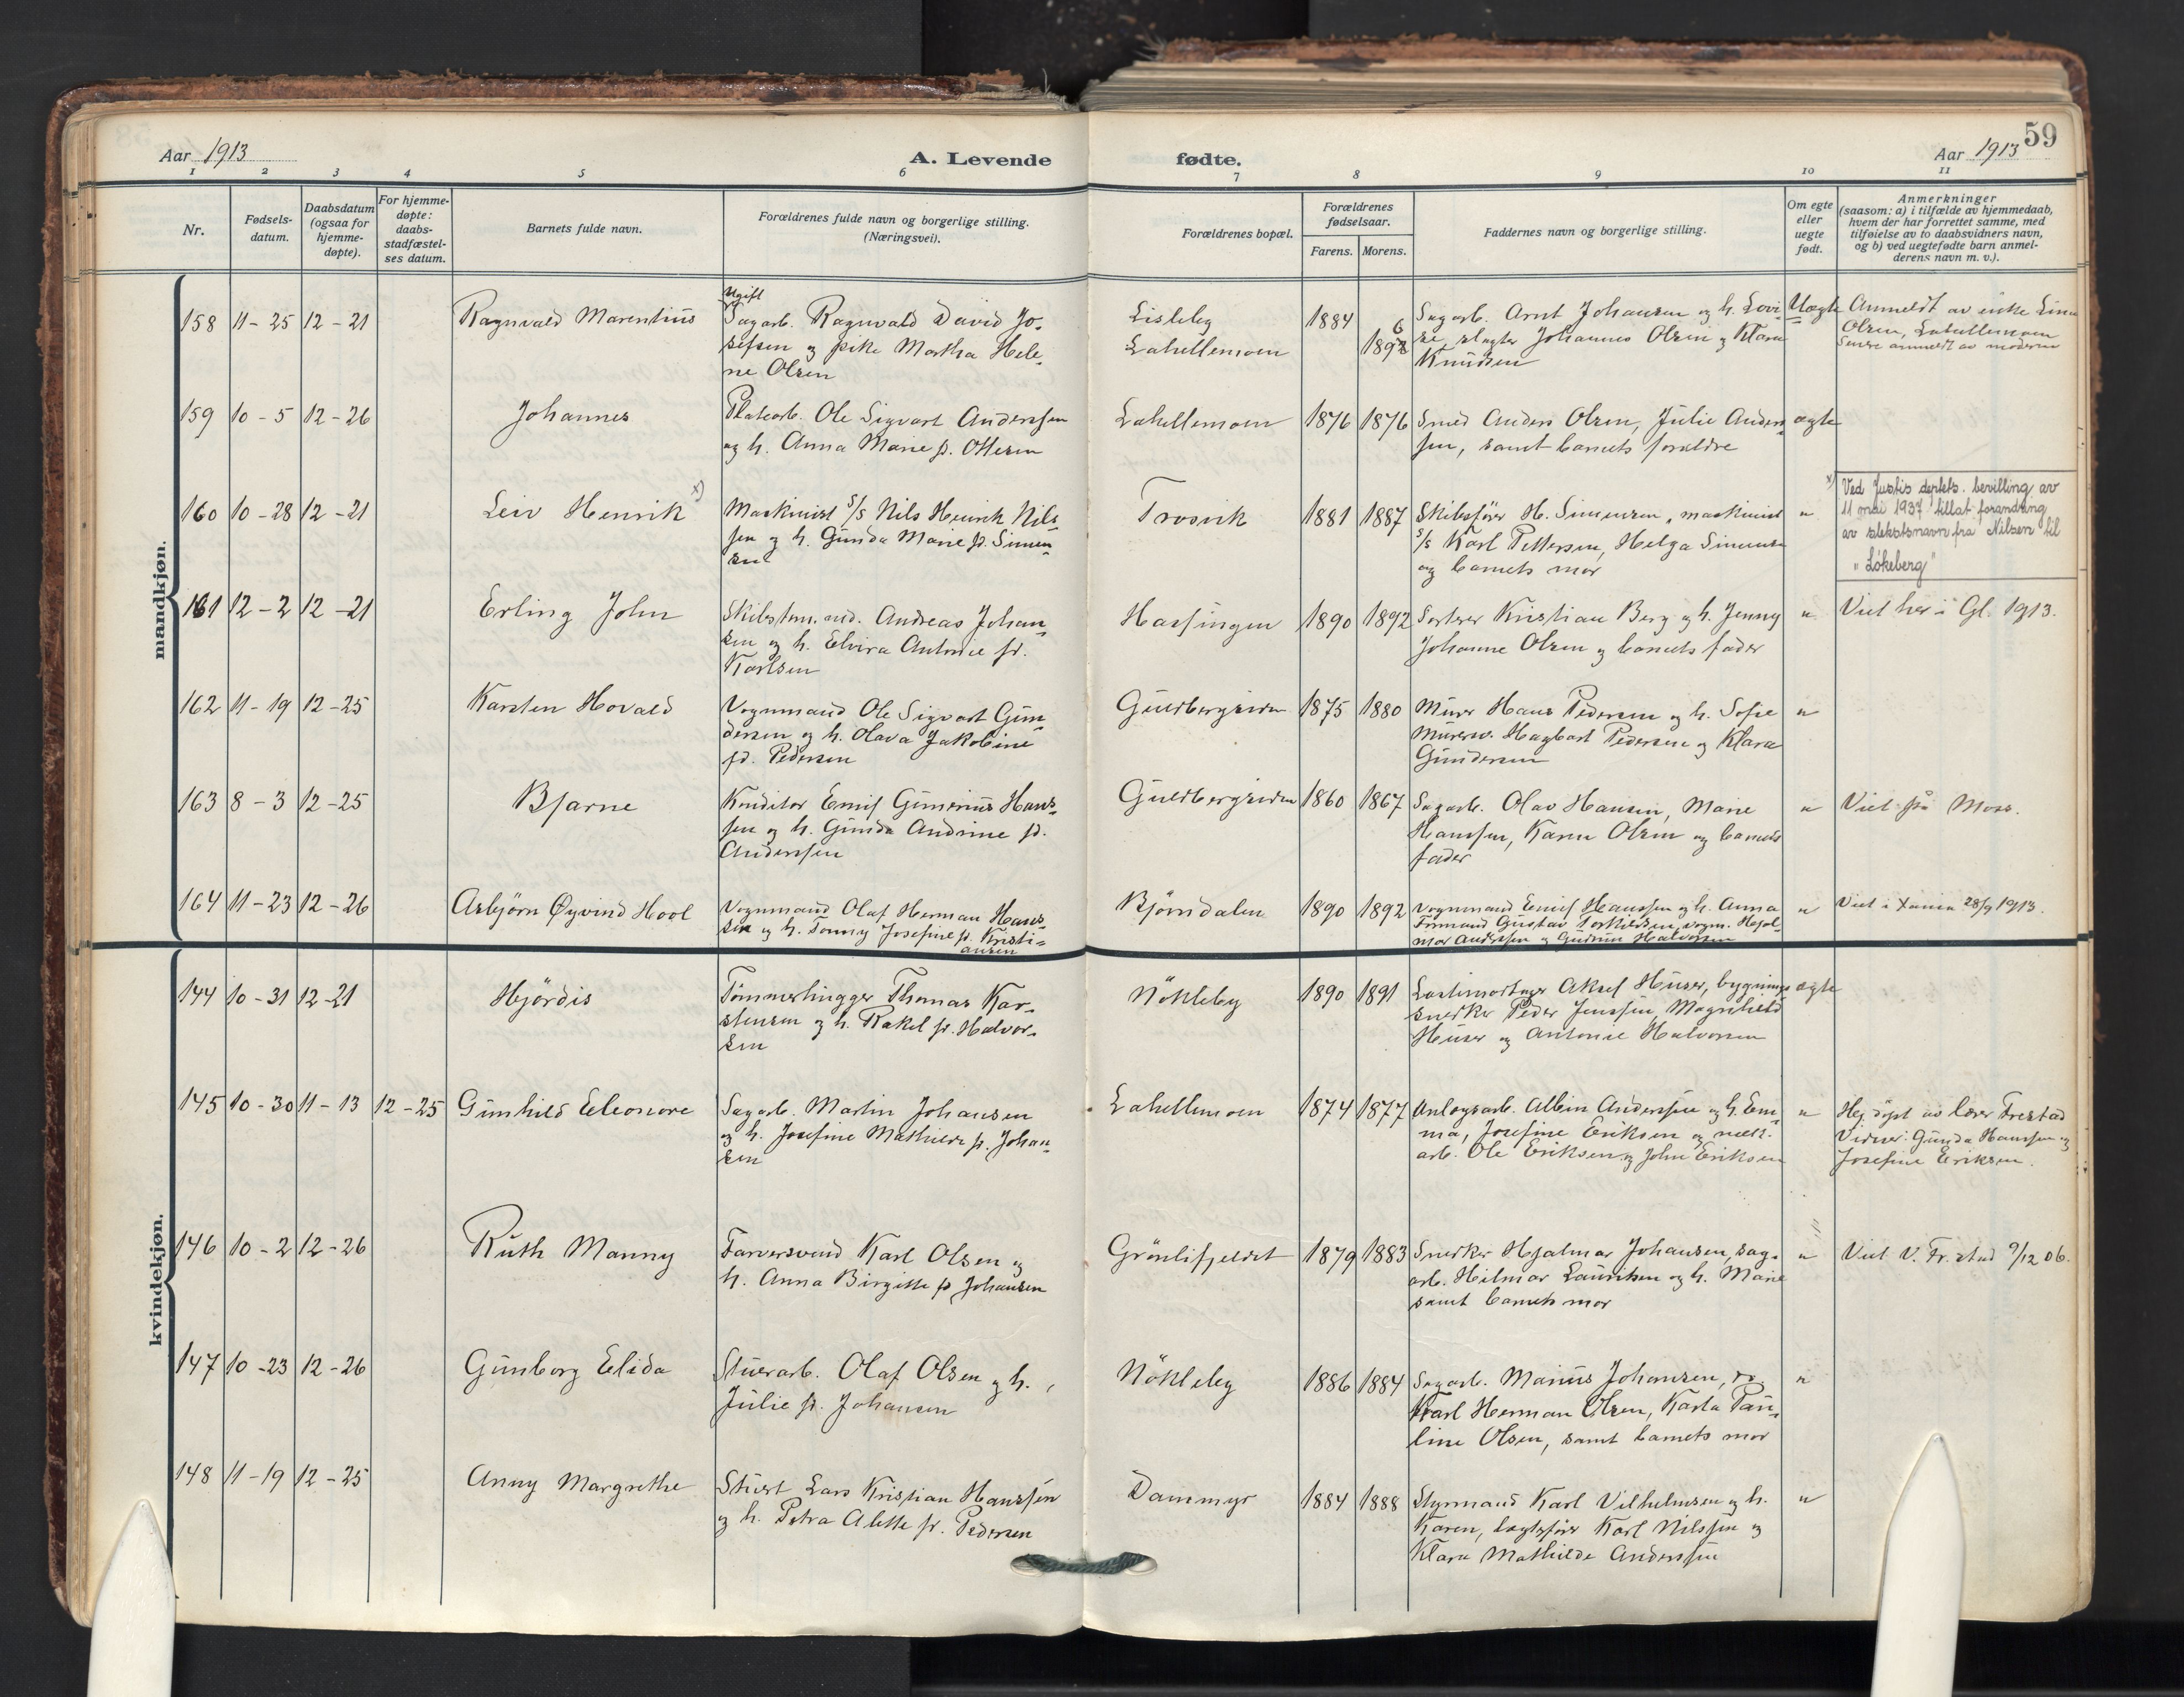 59
Aar 1913
A. Levende
fødte.
Aar 1913
1 2 3 4 5 6 7 8 9 10 11
Nr.
Fødsels-
datum.
Daabsdatum
(ogsaa for
hjemme-
døpte).
For hjemme-
døpte:
daabs-
stadfæstel-
ses datum.
Barnets fulde navn.
Forældrenes fulde navn og borgerlige stilling.
(Næringsvei).
Forældrenes bopæl.
Forældrenes
fødselsaar.
Farens. Morens.
Faddernes navn og borgerlige stilling.
Om egte
eller
uegte
født.
Anmerkninger
(saasom: a) i tilfælde av hjemmedaab,
hvem der har forrettet samme, med
tilføielse av to daabsvidners navn,
og b) ved uegtefødte barn anmel-
derens navn m. v.).
mandkjøn.
158 11-25 12-21
Ragnvald Marentius
Ugift
Sagarb. Ragnvald David Jo-
sefsen og pike Martha Hele-
ne Olsen
Lisleby
Lahellemoen
1884
189 6
Sagarb. Arnt Johansen og h. Lovi-
se, slagter Johannes Olsen og Klara
Knudsen
Uægte
Anmeldt av enke Lina
Olsen, Lahellemoen
Senere anmeldt av moderen
159 10-5 12-26
Johannes
Platearb. Ole Sigvart Anderssen
og h. Anna Marie f. Ottesen
Lahellemoen
1876 1876
Smed Anders Olsen, Julie Anders-
sen, samt barnets forældre
ægte
160 10-28 12-21
Leiv Henrik x)
Maskinist S/S Nils Henrik Nils-
sen og h. Gunda Marie f. Simen-
sen
Trosvik
1881 1887
Skibsfører H. Simensen, maskinist
S/S Karl Pettersen, Helga Simensen
og barnets mor
"
x) Ved Justis deptets. bevilling av
11 mai 1937 tillat forandring
av slektsnavn fra Nilsen til
"Løkeberg"
161 12-2 12-21
Erling John
Skibstm. md. Andreas Johan-
sen og h. Elvira Antonie f.
Karlsen
Hassingen
1890 1892
Sorterer Kristian Berg og h. Jenny
Johanne Olsen og barnets fader
"
Viet her i Gl. 1913.
162 11-19 12-25
Karsten Hovald
Vognmand Ole Sigvart Gun-
dersen og h. Olava Jakobine
fd. Pedersen
Guldbergsiden
1875 1880
Murer Hans Pedersen og h. Sofie
Murersv. Hagbart Pedersen og Klara
Gundersen
"
163 8-3 12-25
Bjarne
Konditor Emil Gunerius Hans-
sen og h. Gunda Andrine f.
Anderssen
Guldbergsiden
1860 1867
Sagarb. Olav Hansen, Marie
Hanssen, Karen Olsen og barnets
fader
"
Viet på Moss.
164 11-23 12-26
Asbjørn Øyvind Hool
Vognmand Olaf Herman Hans-
sen og h. Tonny Josefine f. Kristi-
ansen
Bjørndalen
1890 1892
Vognmand Emil Hanssen og h. Anna
Formand Gustav Torkildsen, vogm. Hjal-
mar Anderssen og Gudrun Halvorsen
"
Viet i Xania 28/9 1913.
kvindekjøn.
144 10-31 12-21
Hjördis
Tømmerhugger Thomas Kar-
stensen og h. Rakel f. Halvor-
sen
Nökleby
1890 1891
Lastemottager Aksel Huser, bygnings-
snekker Peder Jenssen, Magnhild
Huser og Antonie Halvorsen
ægte
145 10-30 11-13 12-25
Gunhild Eleonore
Sagarb. Martin Johansen
og h. Josefine Mathilde f. Johan-
sen
Lahellemoen
1874 1877
Anlægsarb. Albin Anderssen og h. Em-
ma, Josefine Eriksen og mek.
arb. Ole Eriksen og John Eriksen
"
Hj. döpt av lærer Frestad
Vidner: Gunda Hanssen og
Josefine Eriksen.
146 10-2 12-26
Ruth Manny
Farversvend Karl Olsen og
h. Anna Birgitte f. Johansen
Grönlifjeldet
1879 1883
Snekker Hjalmar Johansen, sag-
arb. Hilmar Lauritsen og h. Marie
samt barnets mor
"
Viet V. Fr.stad 9/12 06.
147 10-23 12-26
Gunborg Elida
Stuerarb. Olaf Olsen og h.
Julie f. Johansen
Nökleby
1886 1884
Sagarb. Marius Johansen, do
Karl Herman Olsen, Karla Pau-
line Olsen, samt barnets mor
"
148 11-19 12-25
Anny Margrethe
Stuert Lars Kristian Hanssen
og h. Petra Alette f. Pedersen
Dammyr
1884 1888
Styrmand Karl Vilhelmsen og h.
Karen, bagtsfører Karl Nilssen og
Klara Mathilde Anderssen
"